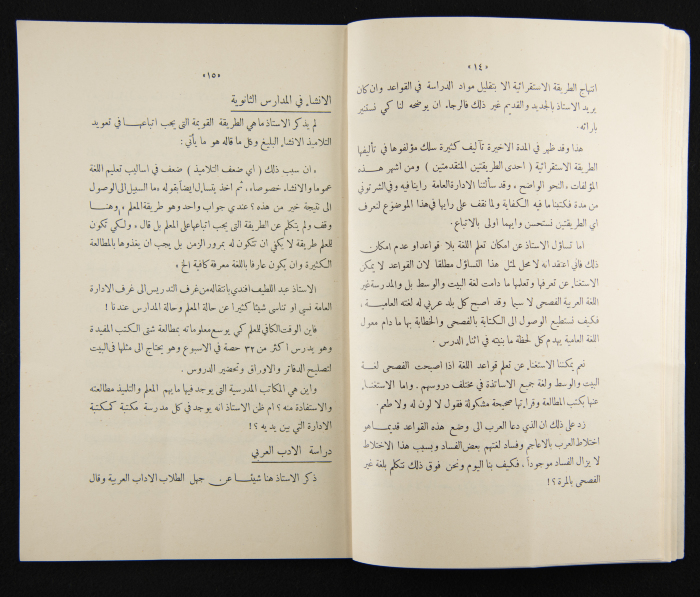 «١٤»
انتهاج الطريقة الاستقرائية الا بتقليل مواد الدراسة في القواعد وان كان
يريد الاستاذ بالجديد والقديم غير ذلك فالرجاء ان يوضحه لنا كي نستنير
بارائه .
هذا وقد ظهر في المدة الاخيرة تآليف كثيرة سلك مؤلفوها في تأليفها
الطريقة الاستقرائية ( احدى الطريقتين المتقدمتين ) ومن اشهر هذه
المؤلفات ، النحو الواضح ، وقد سألتنا الادارة العامة رأينا فيه وفي الشرتوني
من مدة فكتبنا ما فيه الكفاية ولما نقف على رايها في هذا الموضوع لنعرف
اي الطريقتين نستحسن وايهما اولى بالاتباع .
اما تساؤل الاستاذ عن امكان تعلم اللغة بلا قواعد او عدم امكان
ذلك فاني اعتقد انه لا محل لمثل هذا التساؤل مطلقا لان القواعد لا يمكن
الاستغناء عن تعرفها وتعلمها ما دامت لغة البيت والوسط بل والمدرسة غير
اللغة العربية الفصحى لا سيما وقد اصبح كل بلد عربي له لغته العامية ،
فكيف نستطيع الوصول الى الكتابة بالفصحى والخطابة بها ما دام معول
اللغة العامية يهدم كل لحظة ما بنيته في اثناء الدرس .
نعم يمكننا الاستغناء عن تعلم قواعد اللغة اذا اصبحت الفصحى لغة
البيت والوسط ولغة جميع الاساتذة في مختلف دروسهم . واما الاستغناء
عنها بكتب المطالعة وقراءتها صحيحة مشكولة فقول لا لون له ولا طعم .
زد على ذلك ان الذي دعا العرب الى وضع هذه القواعد قديما هو
اختلاط العرب بالاعاجم وفساد لغتهم بعض الفساد وبسبب هذا الاختلاط
لا يزال الفساد موجوداً ، فكيف بنا اليوم ونحن فوق ذلك نتكلم بلغة غير
الفصحى بالمرة ؟!
«١٥»
الانشاء في المدارس الثانوية
لم يذكر الاستاذ ما هي الطريقة القويمة التي يجب اتباعها في تعويد
التلاميذ الانشاء البليغ وكل ما قاله هو ما يأتي :
« ان سبب ذلك ( اي ضعف التلاميذ ) ضعف في اساليب تعليم اللغة
عموما والانشاء خصوصا » ثم اخذ يتساءل ايضاً بقوله « ما السبيل الى الوصول
الى نتيجة خير من هذه ؟ عندي جواب واحد وهو طريقة المعلم » وهنا
وقف ولم يتكلم عن الطريقة التي يجب اتباعها على المعلم بل قال « ولكي تكون
للمعلم طريقة لا يكفي ان تتكون له بمرور الزمن بل يجب ان يغذوها بالمطالعة
الكثيرة وان يكون عارفا باللغة معرفة كافية الخ »
الاستاذ عبد اللطيف افندي بانتقاله من غرف التدريس الى غرف الادارة
العامة نسي او تناسى شيئا كثيرا عن حالة المعلم وحالة المدارس عندنا !
فاين الوقت الكافي للمعلم كي يوسع معلوماته بمطالعة شتى الكتب المفيدة
وهو يدرس اكثر من ٣٢ حصة في الاسبوع وهو يحتاج الى مثلها في البيت
لتصليح الدفاتر والاوراق وتحضير الدروس .
واين هي المكاتب المدرسية التي يوجد فيها ما يهم المعلم والتلميذ مطالعته
والاستفادة منه ؟ ام ظن الاستاذ انه يوجد في كل مدرسة مكتبة كمكتبة
الادارة التي بين يديه ؟!
دراسة الادب العربي
ذكر الاستاذ هنا شيئا عن جهل الطلاب الاداب العربية وقال